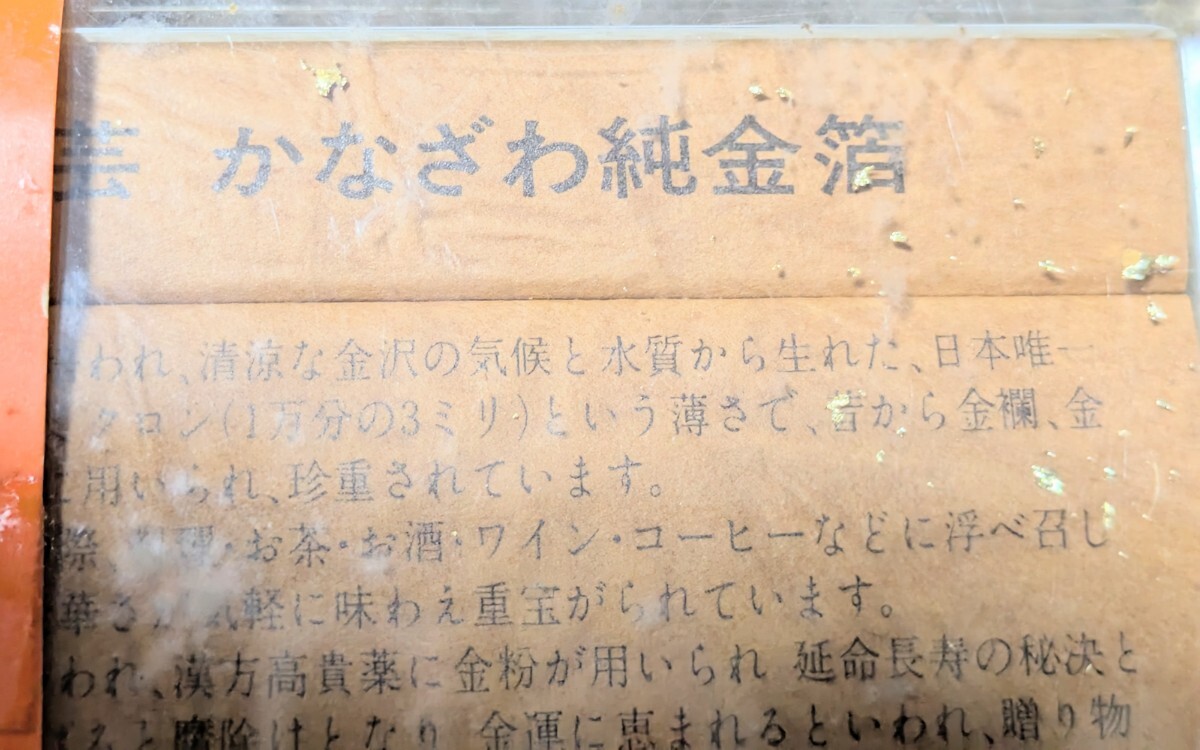 芸 かなざわ純金箔
われ、清涼な金沢の気候と水質から生れた、日本唯一
クロン(1万分の3ミリ)という薄さで、昔から金襴、金
用いられ、珍重されています。
際 ・お茶・お酒・ワイン・コーヒーなどに浮べ召し
華さ 気軽に味わえ重宝がられています。
われ、漢方高貴薬に金粉が用いられ 延命長寿の秘決と
ると魔除けとなり、金運に恵まれるといわれ、贈り物